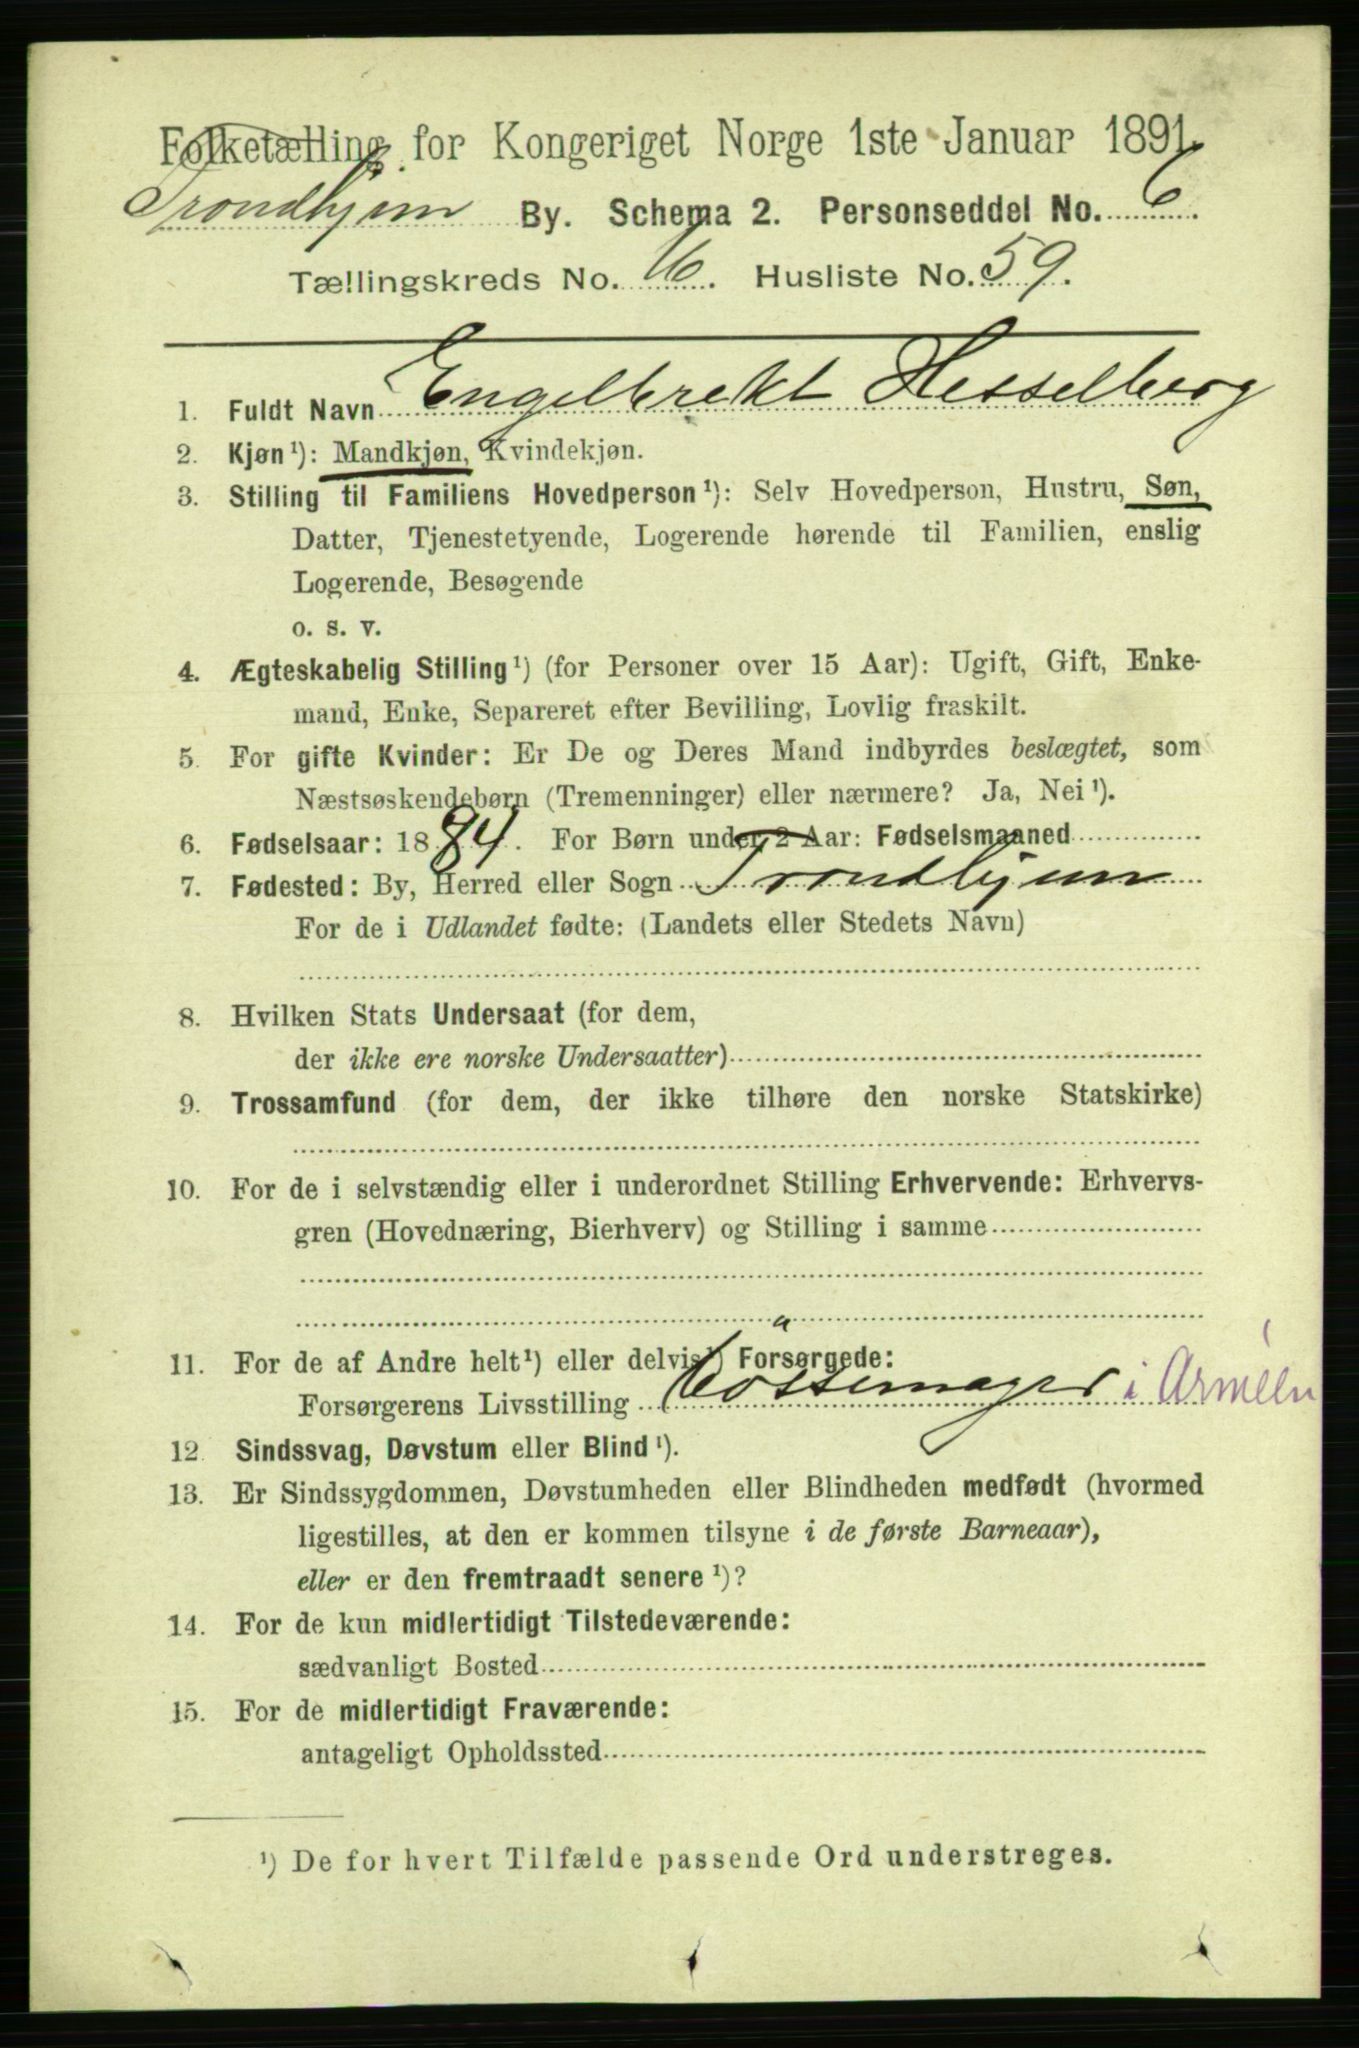 Folketælling for Kongeriget Norge 1ste Januar 1891.
Trondhjem By. Schema 2. Personseddel No. 6.
Tællingskreds No. 16. Husliste No. 59.
1. Fuldt Navn Engelbrekt Hesselberg
2. Kjøn¹): Mandkjøn, Kvindekjøn.
3. Stilling til Familiens Hovedperson¹): Selv Hovedperson, Hustru, Søn,
Datter, Tjenestetyende, Logerende hørende til Familien, enslig
Logerende, Besøgende
o. s. v.
4. Ægteskabelig Stilling¹) (for Personer over 15 Aar): Ugift, Gift, Enke-
mand, Enke, Separeret efter Bevilling, Lovlig fraskilt.
5. For gifte Kvinder: Er De og Deres Mand indbyrdes beslægtet, som
Næstsøskendebørn (Tremenninger) eller nærmere? Ja, Nei¹).
6. Fødselsaar: 1884. For Børn under 2 Aar: Fødselsmaaned
7. Fødested: By, Herred eller Sogn Trondhjem
For de i Udlandet fødte: (Landets eller Stedets Navn)
8. Hvilken Stats Undersaat (for dem,
der ikke ere norske Undersaatter)
9. Trossamfund (for dem, der ikke tilhøre den norske Statskirke)
10. For de i selvstændig eller i underordnet Stilling Erhvervende: Erhvervs-
gren (Hovednæring, Bierhverv) og Stilling i samme
a
11. For de af Andre helt¹) eller delvis¹) Forsørgede:
Forsørgerens Livsstilling i Arméen
12. Sindssvag, Døvstum eller Blind¹).
13. Er Sindssygdommen, Døvstumheden eller Blindheden medfødt (hvormed
ligestilles, at den er kommen tilsyne i de første Barneaar),
eller er den fremtraadt senere¹)?
14. For de kun midlertidigt Tilstedeværende:
sædvanligt Bosted
15. For de midlertidigt Fraværende:
antageligt Opholdssted
¹) De for hvert Tilfælde passende Ord understreges.